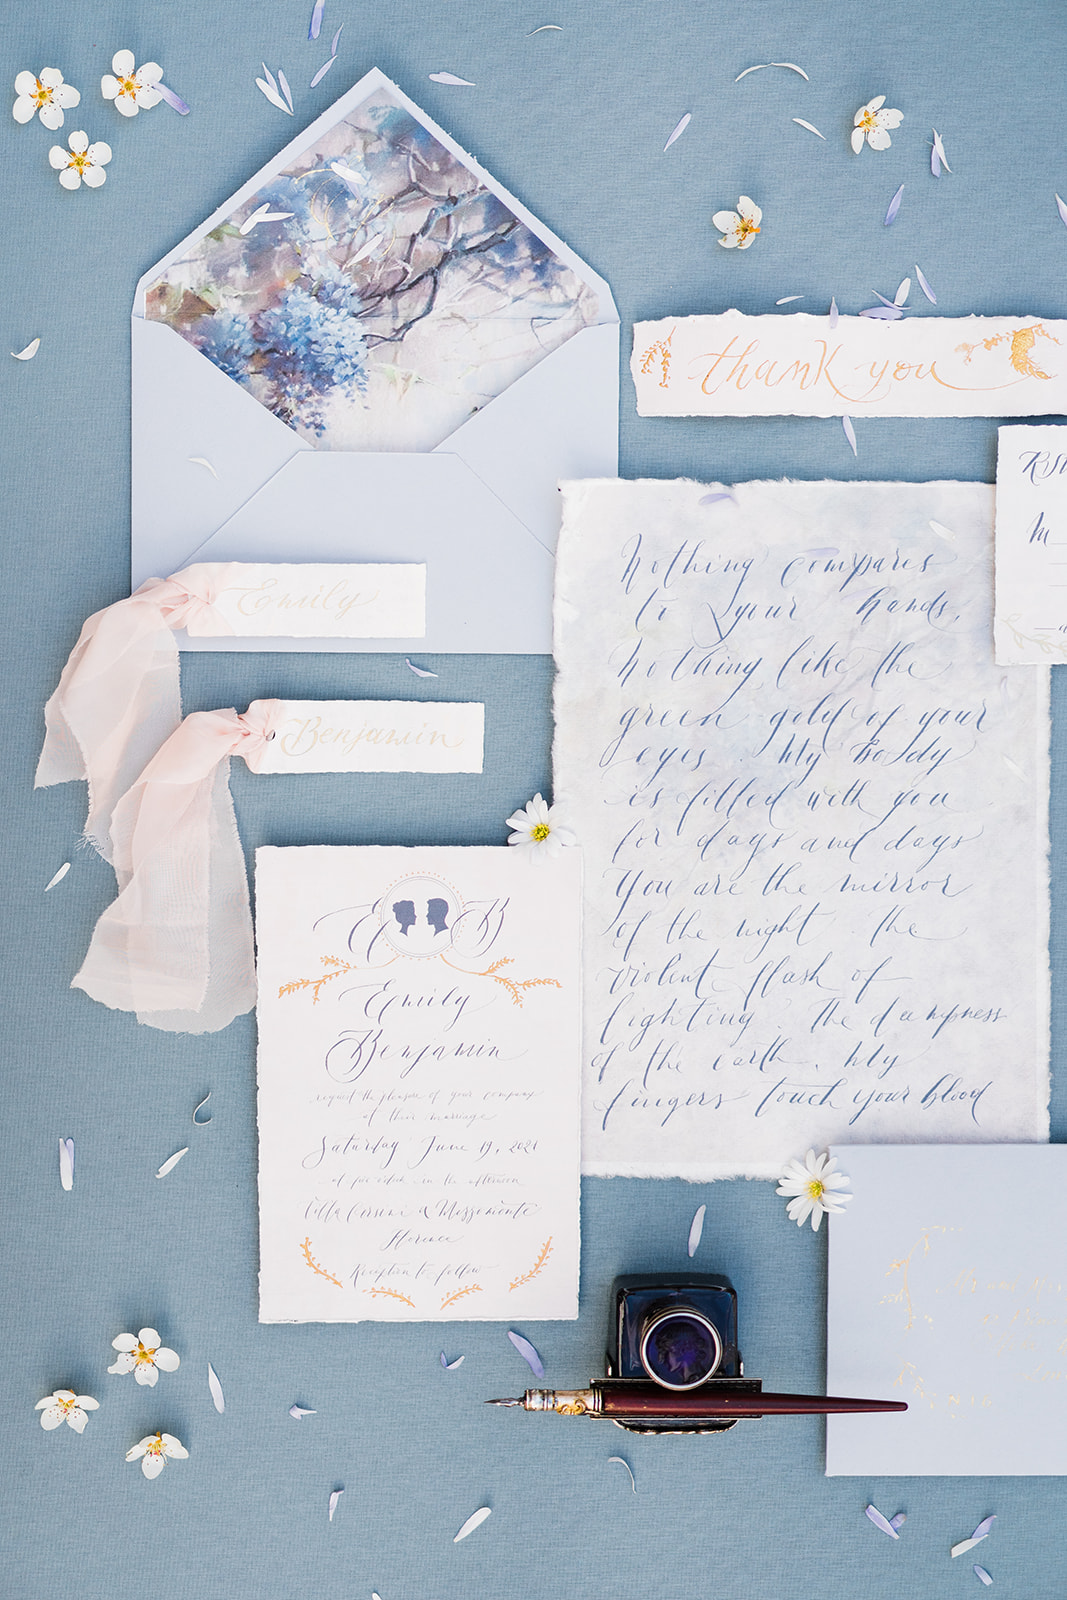 thank you
RSV
M
Emily
Benjamin
Nothing compares
to your hands,
Nothing like the
green gold of your
eyes. My body
is filled with you
for days and days
You are the mirror
of the night. the
violent flash of
lighting. The dampness
of the earth. My
fingers touch your blood
E B
Emily
Benjamin
request the pleasure of your company
at their marriage
Saturday June 19, 2021
at five o'clock in the afternoon
Villa Corsini a Mezzomonte
Florence
Reception to follow